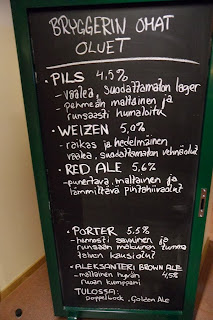 BRYGGERIN OMAT
OLUET
• PILS 4,5%
- vaalea, suodattamaton lager
- pehmeän maltainen ja
runsaasti humaloitu
• WEIZEN 5,0%
- raikas ja hedelmäinen
vaalea, suodattamaton vehnäolut
• RED ALE 5,6%
- punertava, maltainen ja
lämmittävä pintahiivaolut
• PORTER 5.5%
- hennosti savuinen ja
runsaan makuinen tumma
talven kausiolut
• ALEKSANTERI BROWN ALE
- maltainen hyvän 4,5%
ruoan kumppani
TULOSSA:
Doppelbock, Golden Ale